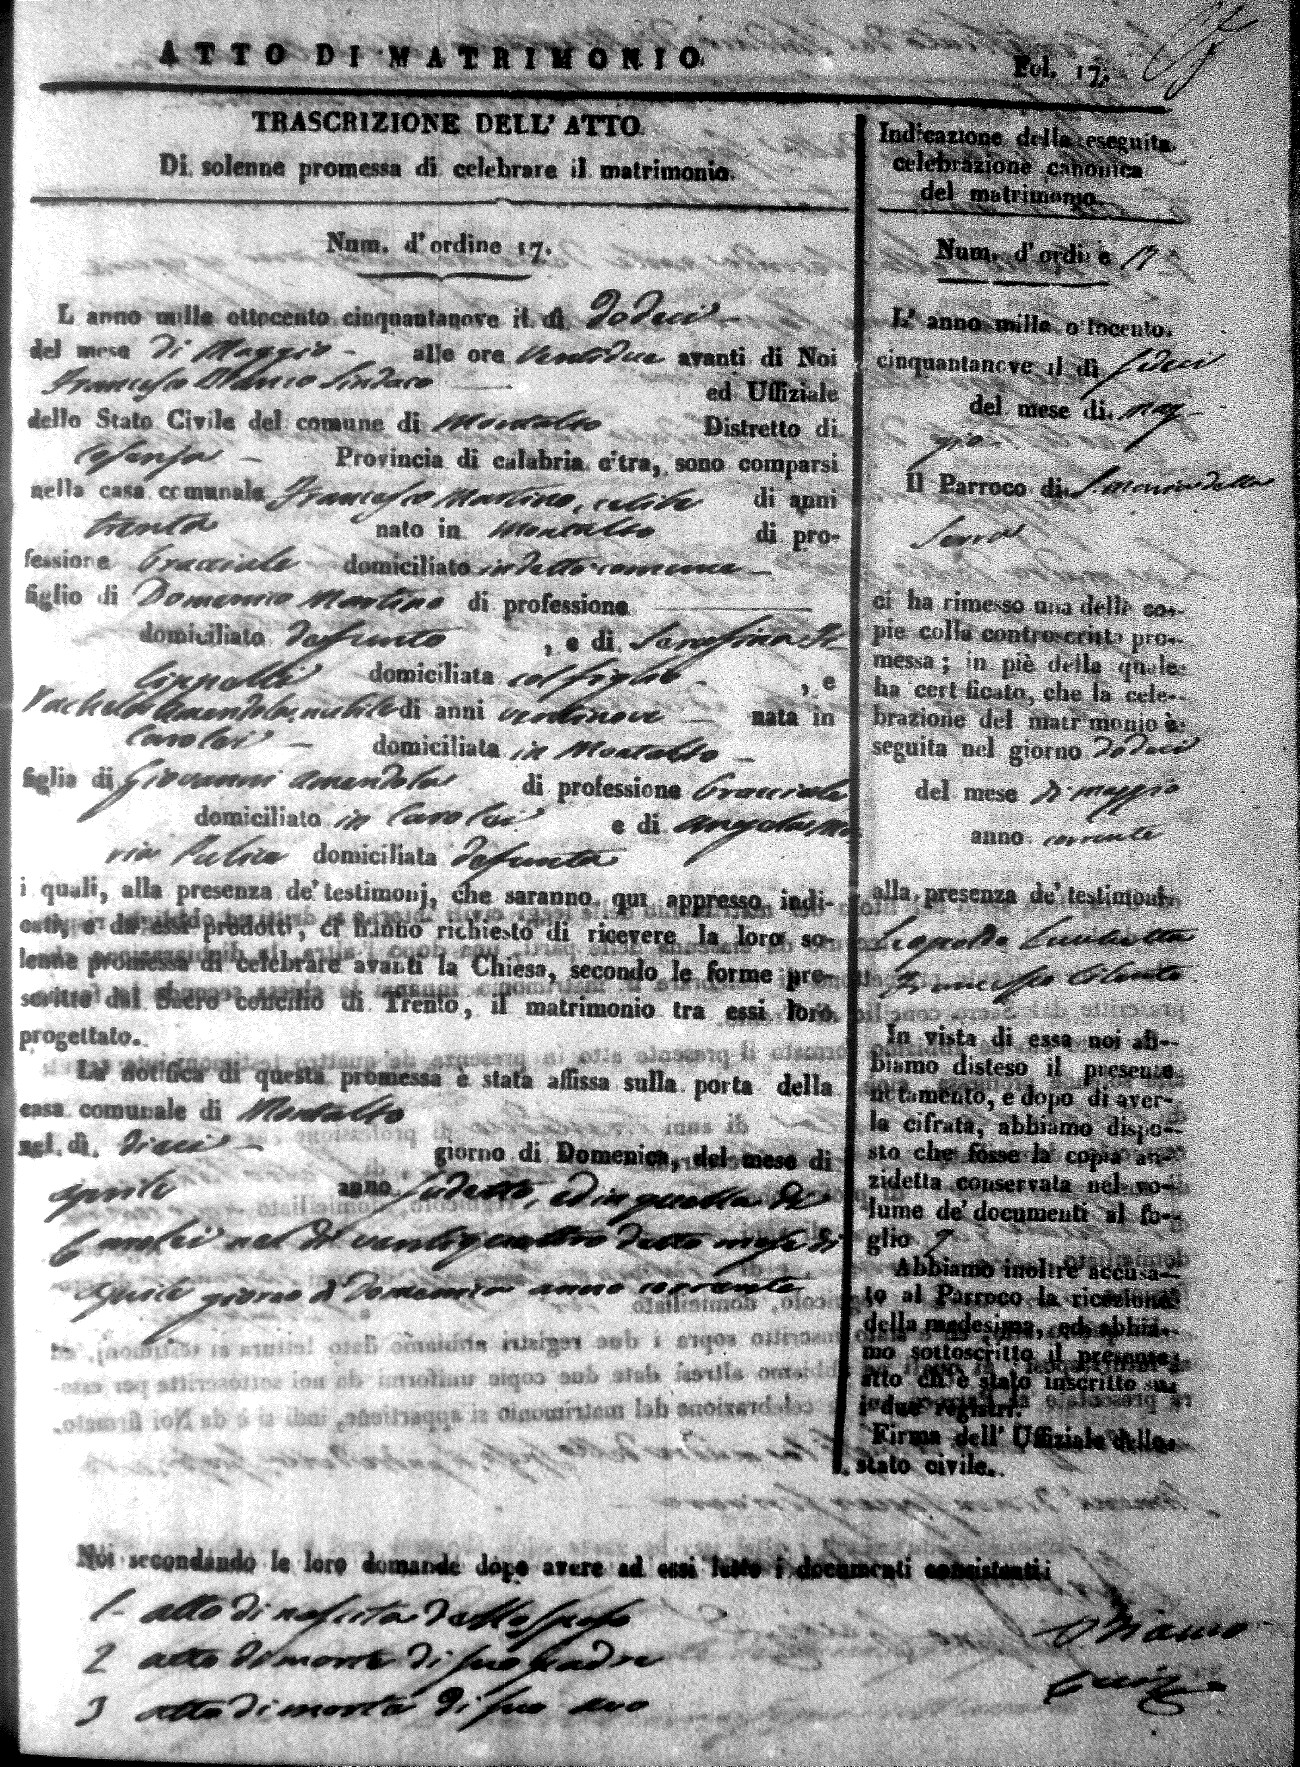 ATTO DI MATRIMONIO
Fol. 17.
TRASCRIZIONE DELL' ATTO
Di solenne promessa di celebrare il matrimonio.
Num. d' ordine 17.
L anno mille ottocento cinquantanove il dì dodeci
del mese di Maggio - alle ore ventidue avanti di Noi
Francesco Sindaco ed Uffiziale
dello Stato Civile del comune di Montalto Distretto di
Cosenza - Provincia di calabria citra, sono comparsi
nella casa comunale Francesco Martino, celibe di anni
trenta nato in Montalto di pro-
fessione bracciale domiciliato in detto comune -
figlio di Domenico Martino di professione
domiciliato defunto , e di Serafina
domiciliata col figlio - , e
Rachela Amendola, nubile di anni ventinove - nata in
Carolei - domiciliata in Montalto -
figlia di Giovanni Amendola di professione bracciale
domiciliato in Carolei e di Angela Ma-
ria domiciliata defunta
i quali, alla presenza de' testimonj, che saranno qui appresso indi-
cati, e da essi prodotti, ci hanno richiesto di ricevere la loro so-
lenne promessa di celebrare avanti la Chiesa, secondo le forme pre-
scritte dal Sacro concilio di Trento, il matrimonio tra essi loro
progettato.
La notifica di questa promessa è stata affissa sulla porta della
casa comunale di Montalto
nel dì dieci - giorno di Domenica, del mese di
aprile anno sudetto, ed in quella di
Carolei nel dì ventiquattro detto mese di
aprile giorno di Domenica anno corrente
Indicazione della eseguita
celebrazione canonica
del matrimonio
Num. d' ordi e 17
L' anno mille o tocento
cinquantanove il dì dodeci
del mese di mag-
gio -
Il Parroco di S. Maria della
Serra
ci ha rimesso una delle co-
pie colla controscritta pro-
messa ; in piè della quale
ha cert ficato, che la cele-
brazione del matr monio è
seguita nel giorno dodeci
del mese di maggio
anno corrente
alla presenza de' testimoni
Leopoldo
Francesco
In vista di essa noi ab-
biamo disteso il presente
notamento, e dopo di aver-
la cifrata, abbiamo dispo-
sto che fosse la copia an-
zidetta conservata nel vo-
lume de' documenti al fo-
glio 7
Abbiamo inoltre accusa-
to al Parroco la ricezione
della medesima, ed abbia-
mo sottoscritto il presente
atto ch' è stato inscritto su
i due registri.
Firma dell' Uffiziale dello
stato civile.
Noi secondando le loro domande dopo avere ad essi letto i documenti consistenti
1 - atto di nascita dello sposo
2 atto di morte di suo padre
3 atto di morte di suo avo